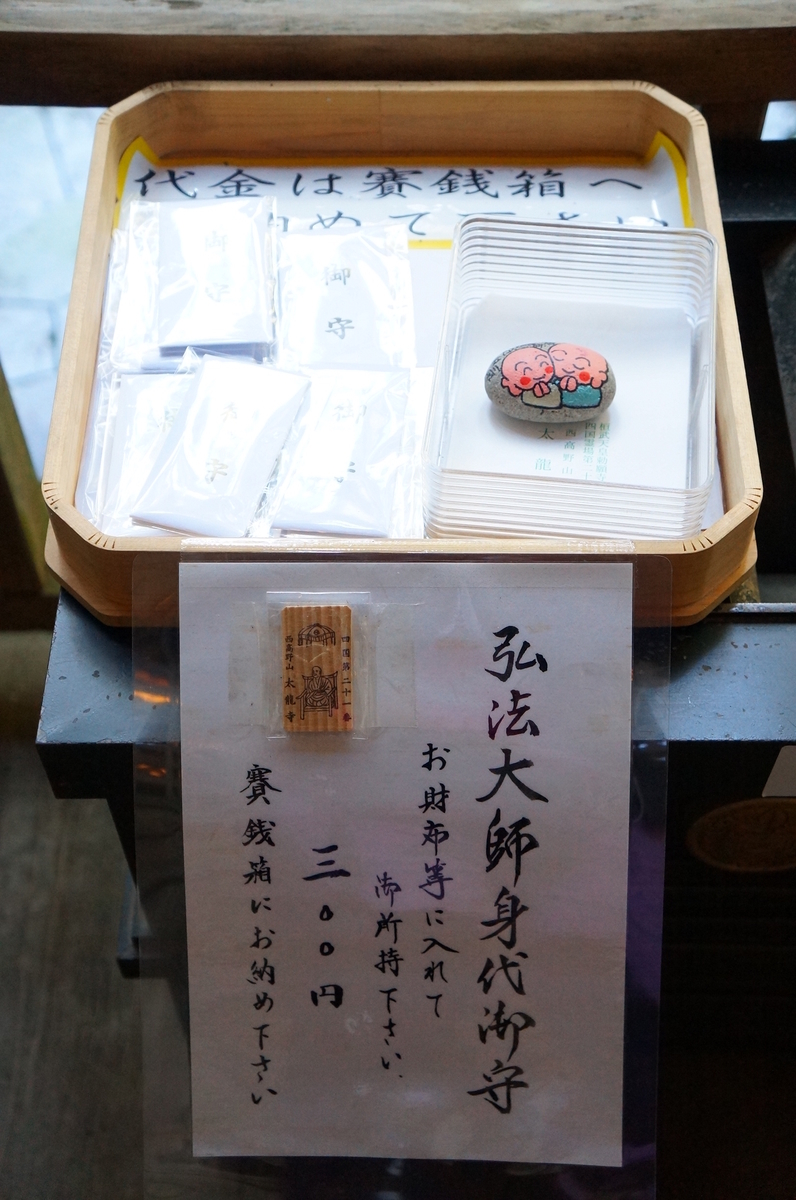 代金は賽銭箱へ
納めて下さい
御守
御守
御守
御守
太龍
西高野山
四国第二十一番
西高野山
太龍寺
弘法大師身代御守
お財布等に入れて
御所持下さい.
三〇〇円
賽銭箱にお納め下さい